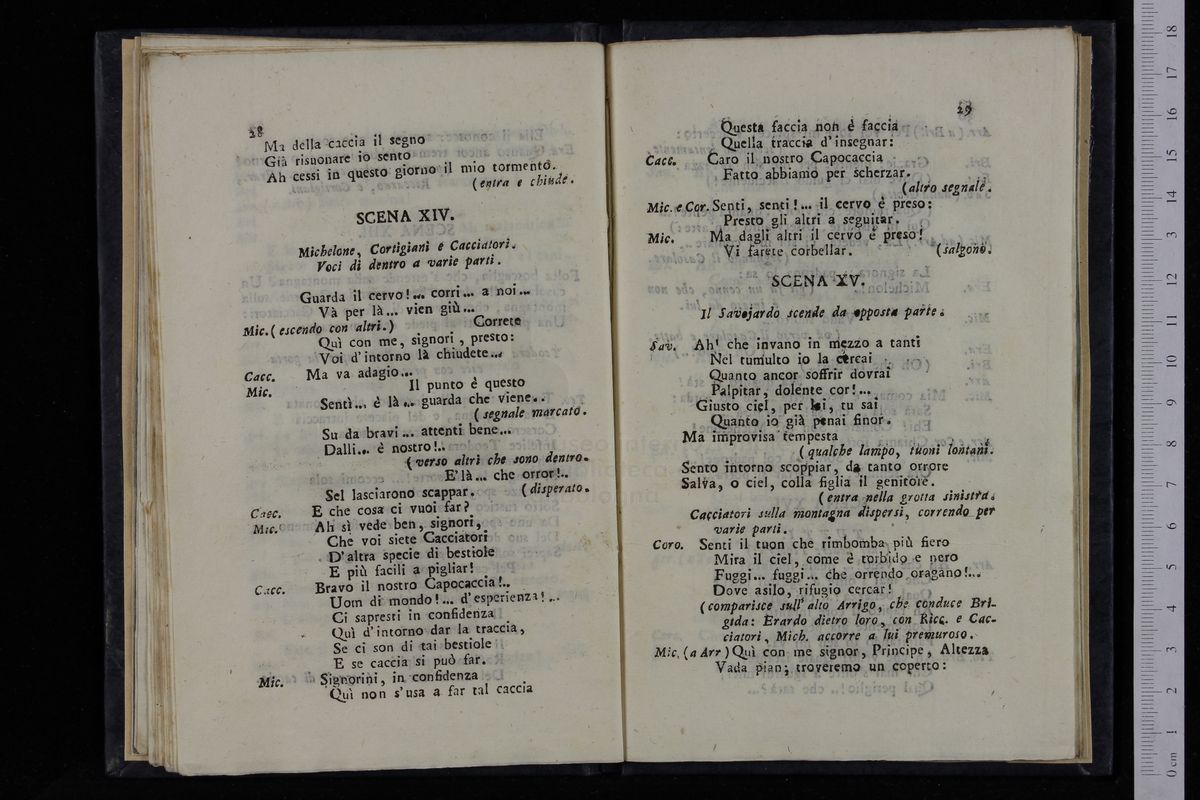 28
Ma della caccia il segno
Già risuonare io sento
Ah cessi in questo giorno il mio tormento.
(entra e chiude.
SCENA XIV.
Michelone, Cortigiani e Cacciatori.
Voci di dentro a varie parti.
Guarda il cervo!... corri... a noi...
Và per là... vien giù...
Mic. (escendo con altri.) Correte
Quì con me, signori, presto:
Voi d'intorno là chiudete...
Cacc. Ma va adagio...
Mic. Il punto è questo
Sentì... è là... guarda che viene..
(segnale marcato.
Su da bravi... attenti bene...
Dalli... è nostro!..
(verso altri che sono dentro.
E' là... che orror!..
Sel lasciarono scappar. (disperato.
Cacc. E che cosa ci vuoi far?
Mic. Ah sì vede ben, signori,
Che voi siete Cacciatori
D'altra specie di bestiole
E più facili a pigliar!
Cacc. Bravo il nostro Capocaccia!..
Uom di mondo!... d'esperienza!...
Ci sapresti in confidenza
Quì d'intorno dar la traccia,
Se ci son di tai bestiole
E se caccia si può far.
Mic. Signorini, in confidenza
Quì non s'usa a far tal caccia
29
Questa faccia non è faccia
Quella traccia d'insegnar:
Cacc. Caro il nostro Capocaccia
Fatto abbiamo per scherzar.
(altro segnale.
Mic. e Cor. Senti, senti!... il cervo è preso:
Presto gli altri a seguitar.
Mic. Ma dagli altri il cervo è preso!
Vi farete corbellar. (salgono.
SCENA XV.
Il Savojardo scende da opposta parte.
Sav. Ah! che invano in mezzo a tanti
Nel tumulto io la cercai
Quanto ancor soffrir dovrai
Palpitar, dolente cor!...
Giusto ciel, per lei, tu sai
Quanto io già penai finor.
Ma improvisa tempesta
(qualche lampo, tuoni lontani.
Sento intorno scoppiar, da tanto orrore
Salva, o ciel, colla figlia il genitore.
(entra nella grotta sinistra.
Cacciatori sulla montagna dispersi, correndo per
varie parti.
Coro. Senti il tuon che rimbomba più fiero
Mira il ciel, come è torbido e nero
Fuggi... fuggi... che orrendo oragano!...
Dove asilo, rifugio cercar!
(comparisce sull'alto Arrigo, che conduce Bri-
gida: Erardo dietro loro, con Ricc. e Cac-
ciatori, Mich. accorre a lui premuroso.
Mic. (a Arr) Quì con me signor, Principe, Altezza
Vada pian; troveremo un coperto:
0 cm 1 2 3 4 5 6 7 8 9 10 11 12 13 14 15 16 17 18